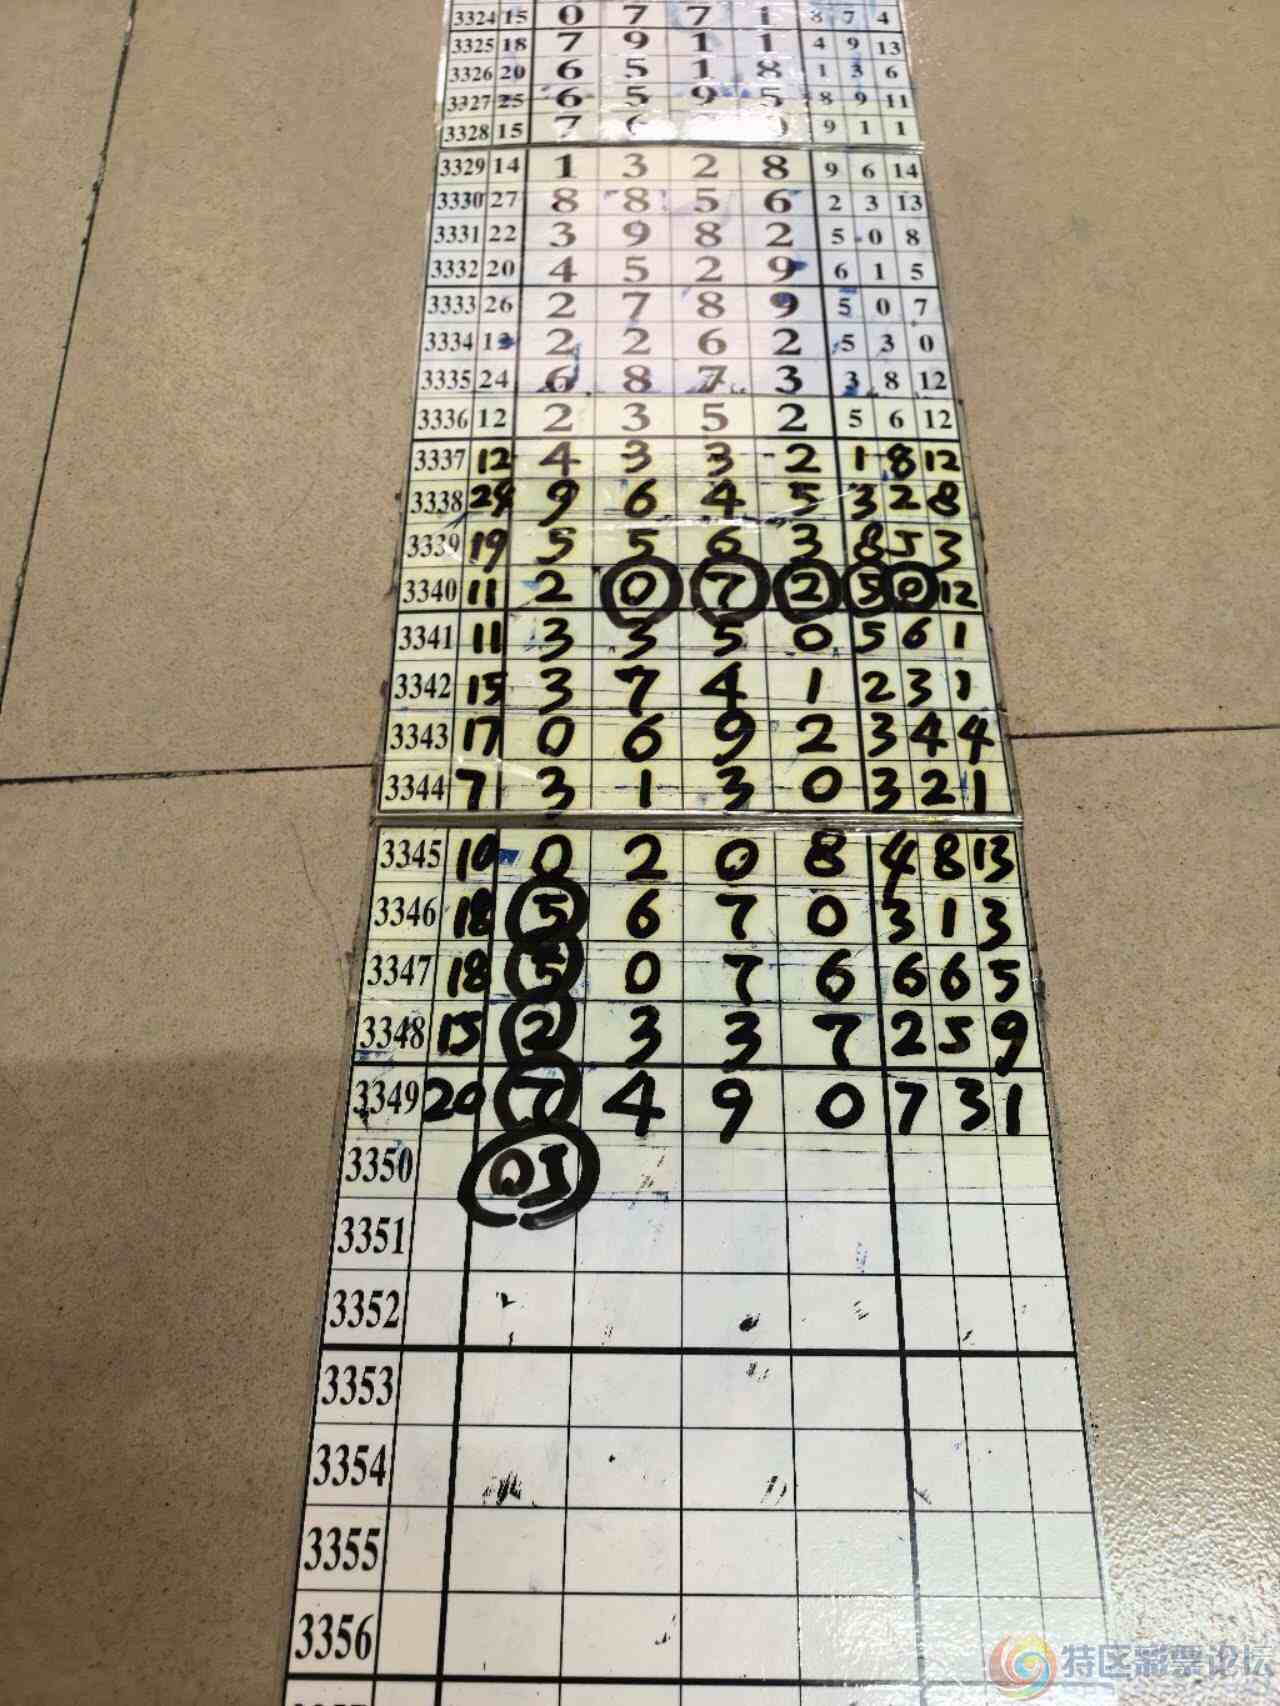 3324 15 0 7 7 1 8 7 4
3325 18 7 9 1 1 4 9 13
3326 20 6 5 1 8 1 3 6
3327 25 6 5 9 5 8 9 11
3328 15 7 9 1 1
3329 14 1 3 2 8 9 6 14
3330 27 8 8 5 6 2 3 13
3331 22 3 9 8 2 5 0 8
3332 20 4 5 2 9 6 1 5
3333 26 2 7 8 9 5 0 7
3334 2 2 6 2 5 3 0
3335 24 6 8 7 3 3 8 12
3336 12 2 3 5 2 5 6 12
3337 12 4 3 3 2 1 8 12
3338 24 9 6 4 5 3 2 8
3339 19 5 5 6 3 8 5 3
3340 11 2 0 7 2 5 0 12
3341 11 3 3 5 0 5 6 1
3342 15 3 7 4 1 2 3 1
3343 17 0 6 9 2 3 4 4
3344 7 3 1 3 0 3 2 1
3345 10 0 2 0 8 4 8 13
3346 18 5 6 7 0 3 1 3
3347 18 5 0 7 6 6 6 5
3348 15 2 3 3 7 2 5 9
3349 20 7 4 9 0 7 3 1
3350 05
3351
3352
3353
3354
3355
3356
特区彩票论坛